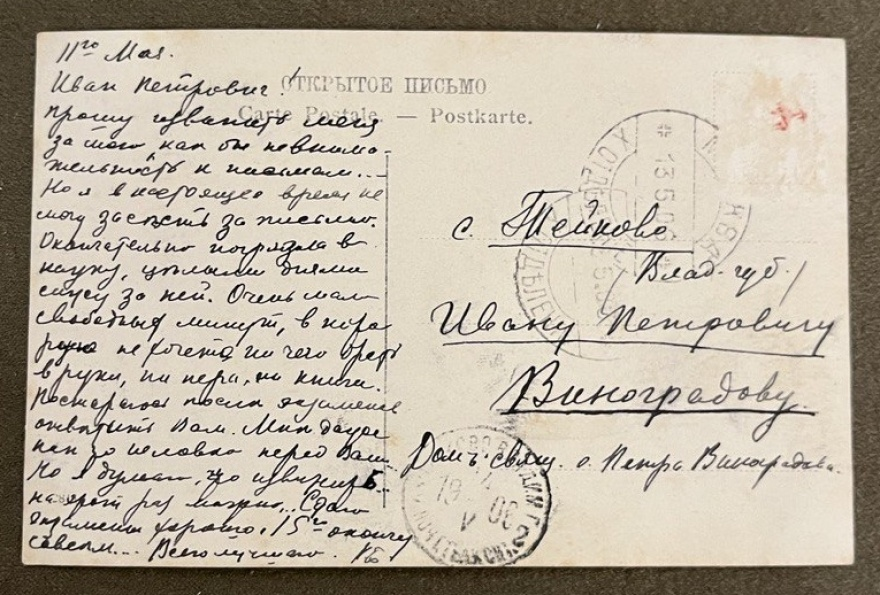 11го Мая.
Иван Петрович!
ОТКРЫТОЕ ПИСЬМО
Carte Postale. — Postkarte.
прошу извинить меня
за мою как бы невнима-
тельность к письмам...
Но я в настоящее время не
могу засесть за письмо.
Окончательно погрязла в
науку, целыми днями
сижу за ней. Очень мало
свободных минут, в кото
рые не хочется ни чего брать
в руки, ни пера, ни книги.
Постараюсь после экзаменов
ответить Вам. Мне даже
как то неловко перед Вами
Но я думаю, что извинить
на этот раз можно... Сдаю
экзамены хорошо, 15го окончу
совсем... Всего лучшего.
с. Тейково
/Влад. губ./
Ивану Петровичу
Виноградову.
Домъ свящ. о. Петра Виноградова.
13.5.06
19
V
06